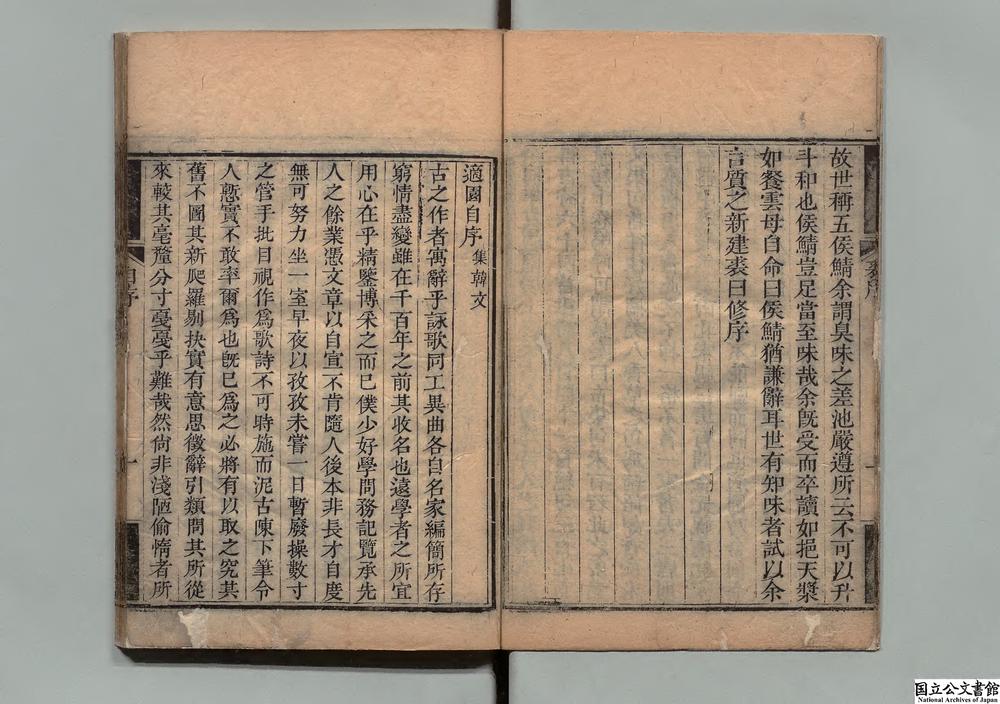 故世稱五侯鯖余謂臭味之差池嚴遵所云不可以升
斗和也侯鯖豈足當至味哉余旣受而卒讀如挹天漿
如餐雲母自命曰侯鯖猶謙辭耳世有知味者試以余
言質之新建裘曰修序
裘序
適園自序 集韓文
古之作者寓辭乎詠歌同工異曲各自名家編簡所存
窮情盡變雖在千百年之前其收名也遠學者之所宜
用心在乎精鑒博采之而已僕少好學問務記覽承先
人之餘業憑文章以自宣不肯隨人後本非長才自度
無可努力坐一室早夜以孜孜未嘗一日暫廢操數寸
之管手批目視作爲歌詩不可時施而泥古陳下筆令
人慙實不敢率爾爲也旣已爲之必將有以取之究其
舊不圖其新爬羅剔抉實有意思徵辭引類問其所從
來較其毫釐分寸戞戞乎難哉然尙非淺陋偷惰者所
自序
一
国立公文書館
National Archives of Japan